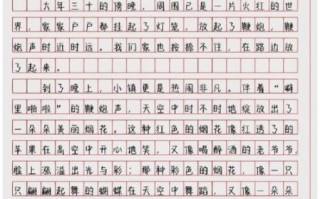 大年三十的傍晚，周围已是一片火红的世
界，家家户户都挂起了灯笼，放起了鞭炮，鞭
炮声时近时远。我们家也按捺不住，在路边放
了起来。
到了晚上，小镇更是热闹非凡。伴着“噼
里啪啦”的鞭炮声，天空中时不时地绽放出了
一朵朵美丽的烟花。这种红色的烟花像红透了的
苹果在高空中开心地笑，又像喝醉酒的老爷爷，
脸上涨溢出光与彩；那种红色的烟花，像一只
只翩翩起舞的蝴蝶在天空中舞蹈，又像一朵朵